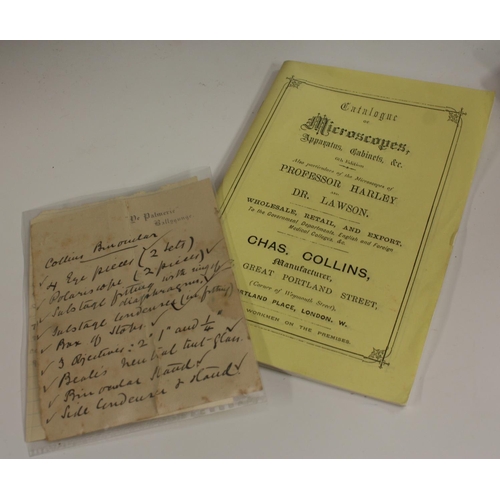 Catalogue
OF
Microscopes,
Apparatus, Cabinets, &c.
Also particulars of the Microscopes of
PROFESSOR HARLEY
AND
DR. LAWSON.
WHOLESALE, RETAIL, AND EXPORT,
To the Government Departments, English and Foreign
Medical Colleges, &c.
CHAS. COLLINS,
Manufacturer,
GREAT PORTLAND STREET,
(Corner of Weymouth Street),
PORTLAND PLACE, LONDON, W.
WORKMEN ON THE PREMISES.
Collins Binocular
✓ 4 Eye pieces (2 sets) ✓
✓ Polariscope (2 pieces) ✓
✓ Substage fitting with rings &
diaphragms ✓
✓ Substage Condenser
✓ Box of Stops ✓
✓ 3 Objectives: 2" 1" and ¼ ✓
✓ Beale's neutral tint-glass.
✓ Binocular Stand ✓
✓ Side Condenser & Stand ✓